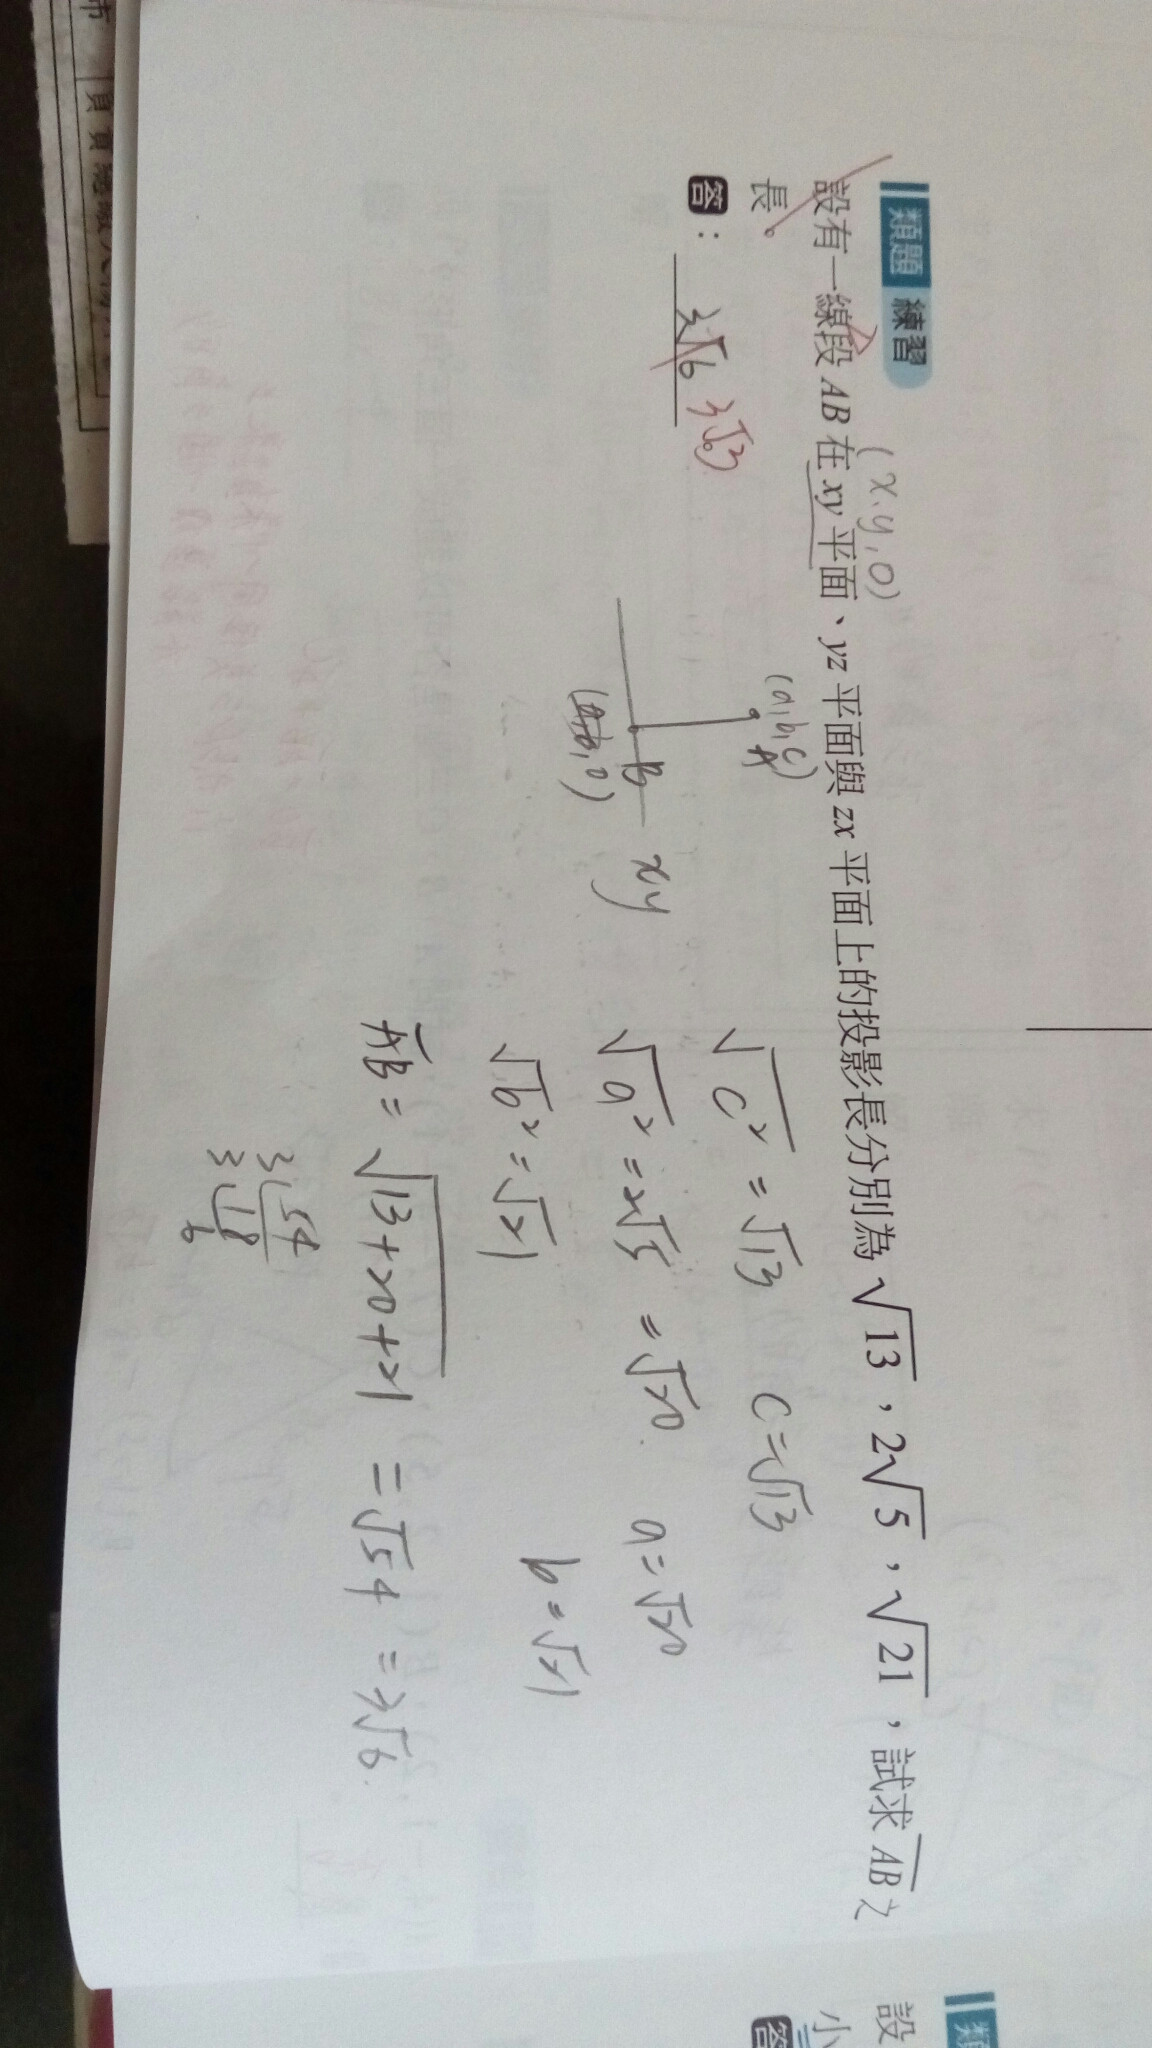 類題 練習
(x, y, 0)
設有一線段 AB 在 xy 平面、yz 平面與 zx 平面上的投影長分別為 √13，2√5，√21，試求 AB 之
長。
答：3√6 3√3
(a,b,c)
A
B
xy
(a,b,0)
√c² = √13 c=√13
√a² = 2√5 = √20 a=√20
√b² = √21 b=√21
AB = √13+20+21 = √54 = 3√6
3 54
3 18
6
類
設
小
答
市